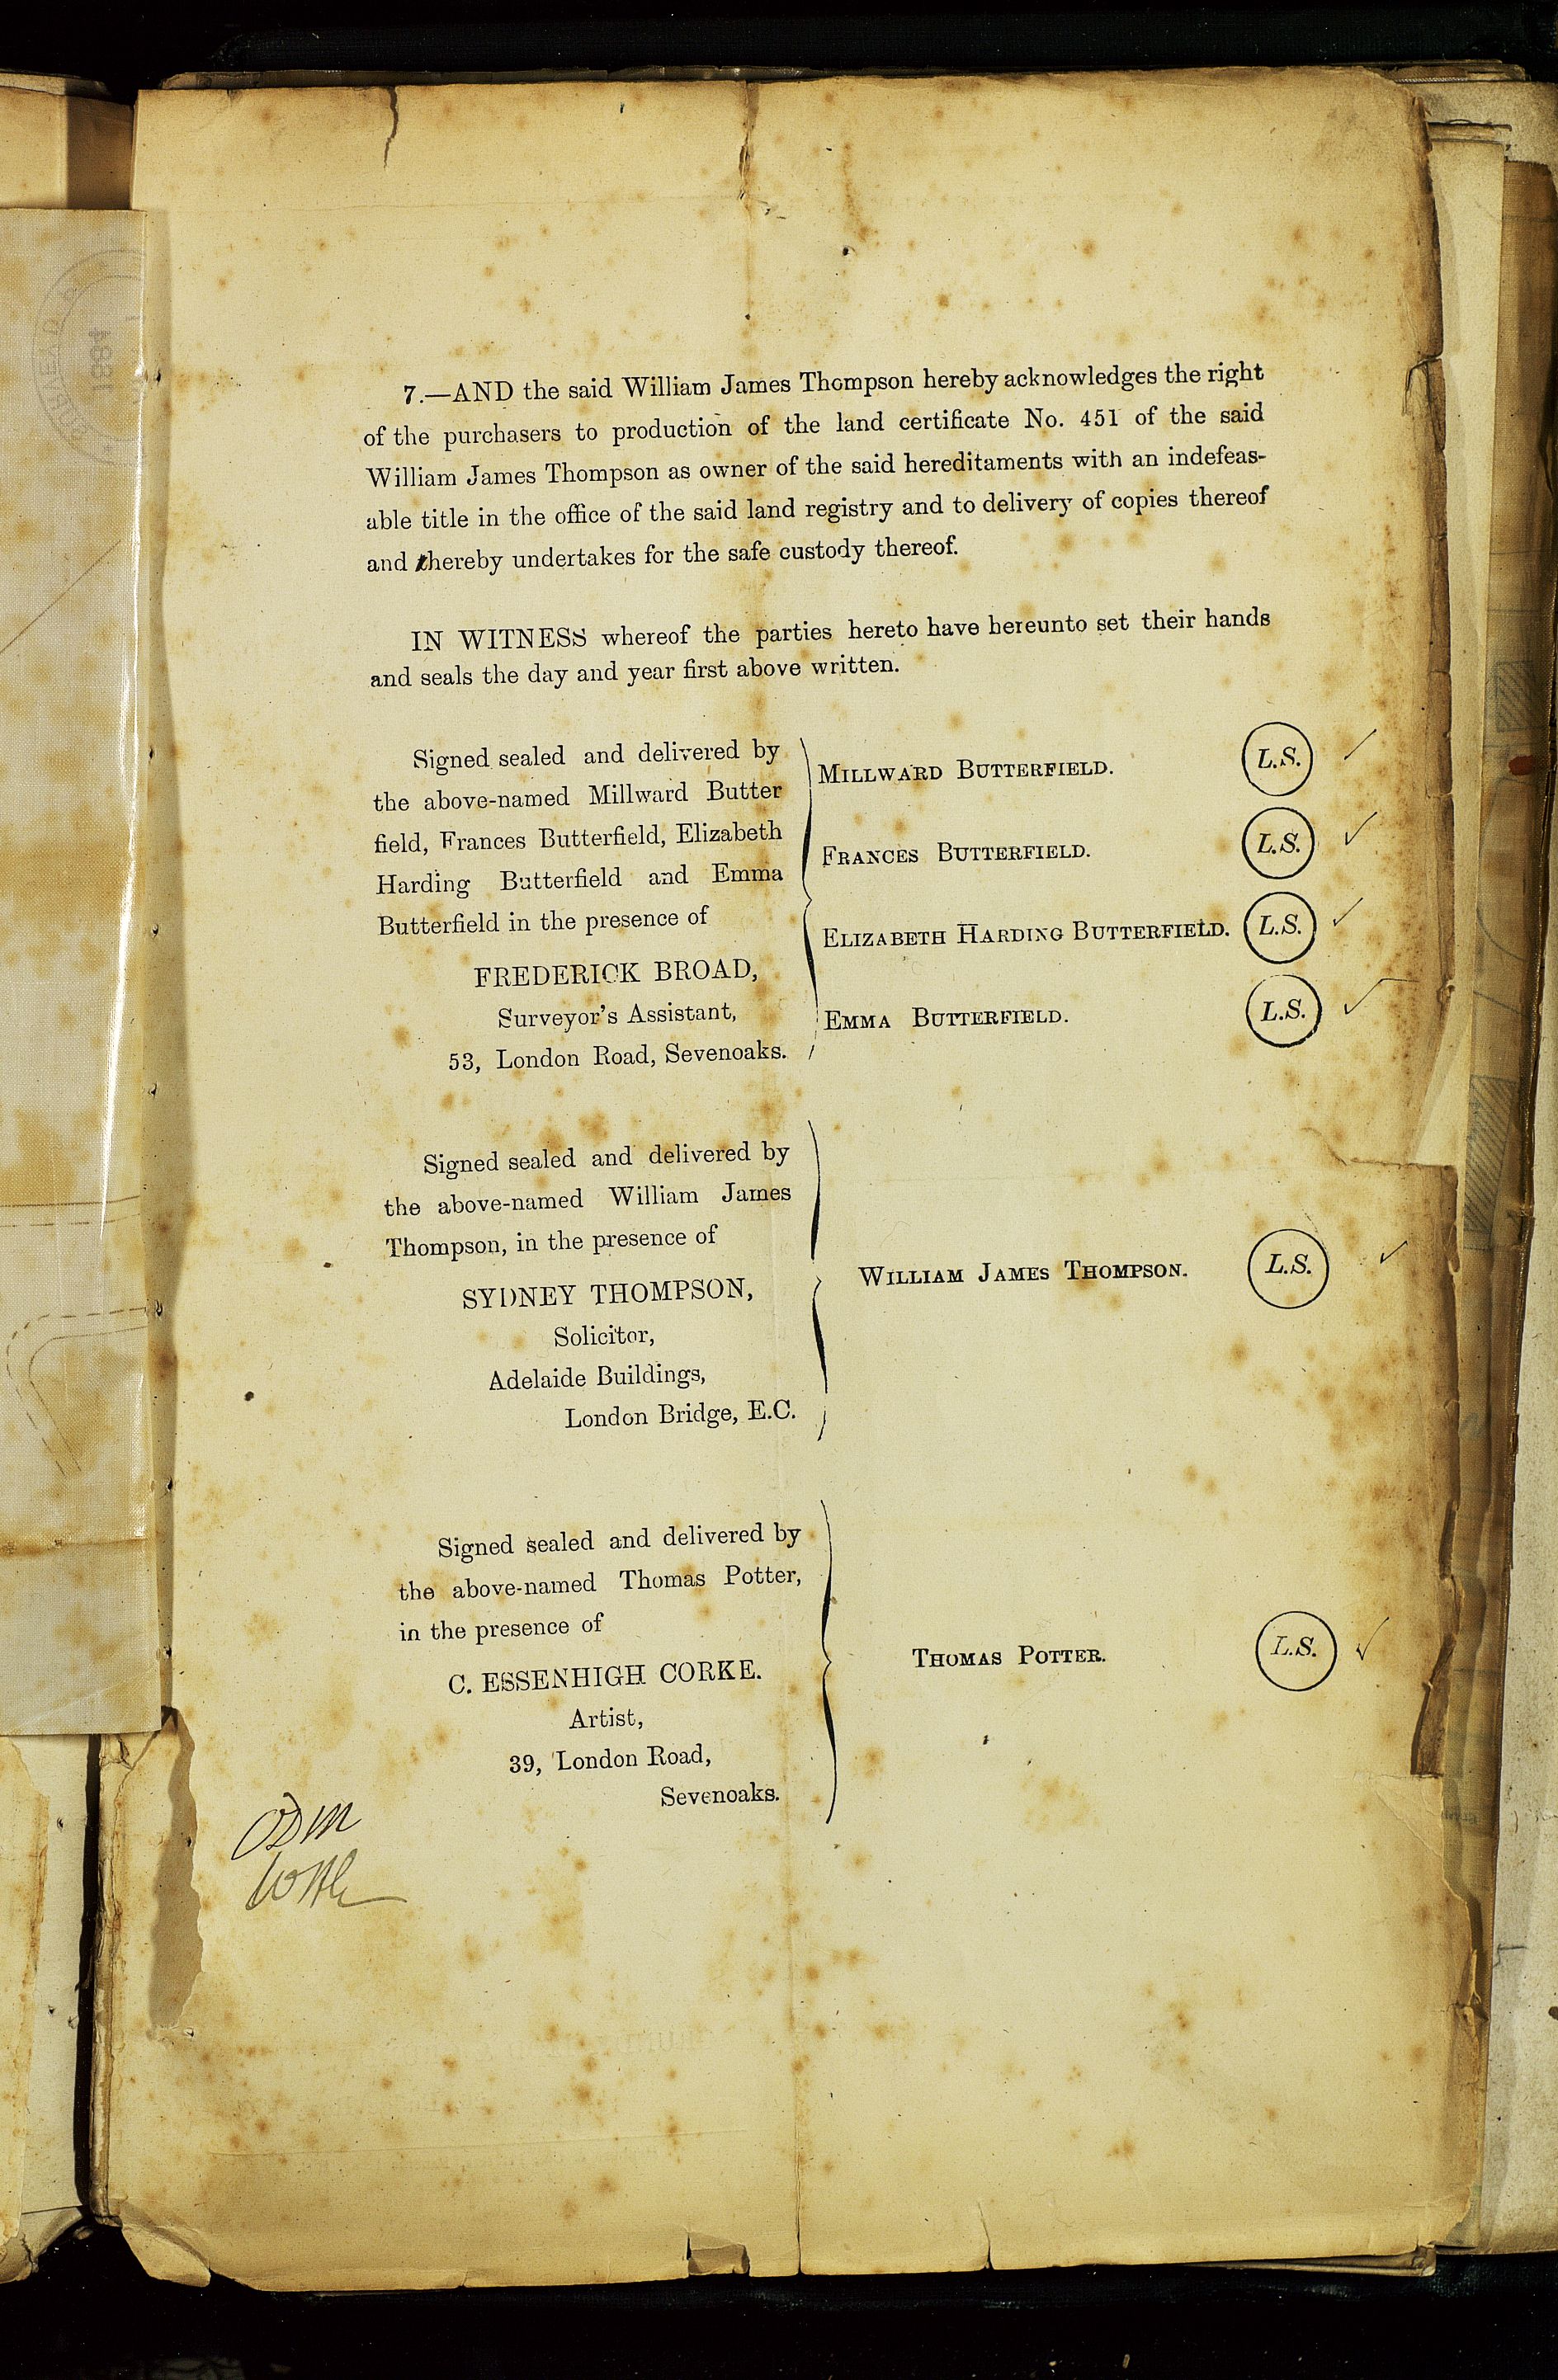 7.—AND the said William James Thompson hereby acknowledges the right
of the purchasers to production of the land certificate No. 451 of the said
William James Thompson as owner of the said hereditaments with an indefeas-
able title in the office of the said land registry and to delivery of copies thereof
and thereby undertakes for the safe custody thereof.
IN WITNESS whereof the parties hereto have hereunto set their hands
and seals the day and year first above written.
Signed sealed and delivered by
the above-named Millward Butter
field, Frances Butterfield, Elizabeth
Harding Butterfield and Emma
Butterfield in the presence of
FREDERICK BROAD,
Surveyor's Assistant,
53, London Road, Sevenoaks.
MILLWARD BUTTERFIELD. L.S.
FRANCES BUTTERFIELD. L.S.
ELIZABETH HARDING BUTTERFIELD. L.S.
EMMA BUTTERFIELD. L.S.
Signed sealed and delivered by
the above-named William James
Thompson, in the presence of
SYDNEY THOMPSON,
Solicitor,
Adelaide Buildings,
London Bridge, E.C.
WILLIAM JAMES THOMPSON. L.S.
Signed sealed and delivered by
the above-named Thomas Potter,
in the presence of
C. ESSENHIGH CORKE.
Artist,
39, London Road,
Sevenoaks.
THOMAS POTTER. L.S.
1884